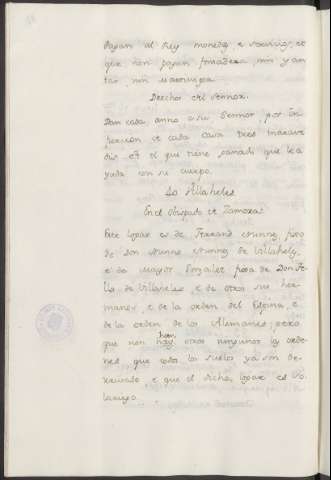 Pagan al Rey moneda, e servicios, et
que non pagan fonsadera nin yan
tar, nin martiniega.
Derechos del Sennor.
Dan cada anno a su Sennor por In
furcion de cada casa tres maravedis
dis et el que tiene ganado que le a
yuda con su cuerpo.
40 Villaheles
En el obispado de Zamora.
Este logar es de Ferrand nunnez fijo
de Don Nunno Nunnez de Villahely,
e de Mayor Gonzalez fija de Don Te
llo de Villaheles e de otros sus her
manos, e de la orden del Espina, e
de la orden de los Alemanes, pero
que non han hay otros ningunos las orde
nes que todo los suelos ya son de
e que el dicho logar es So
lariego.